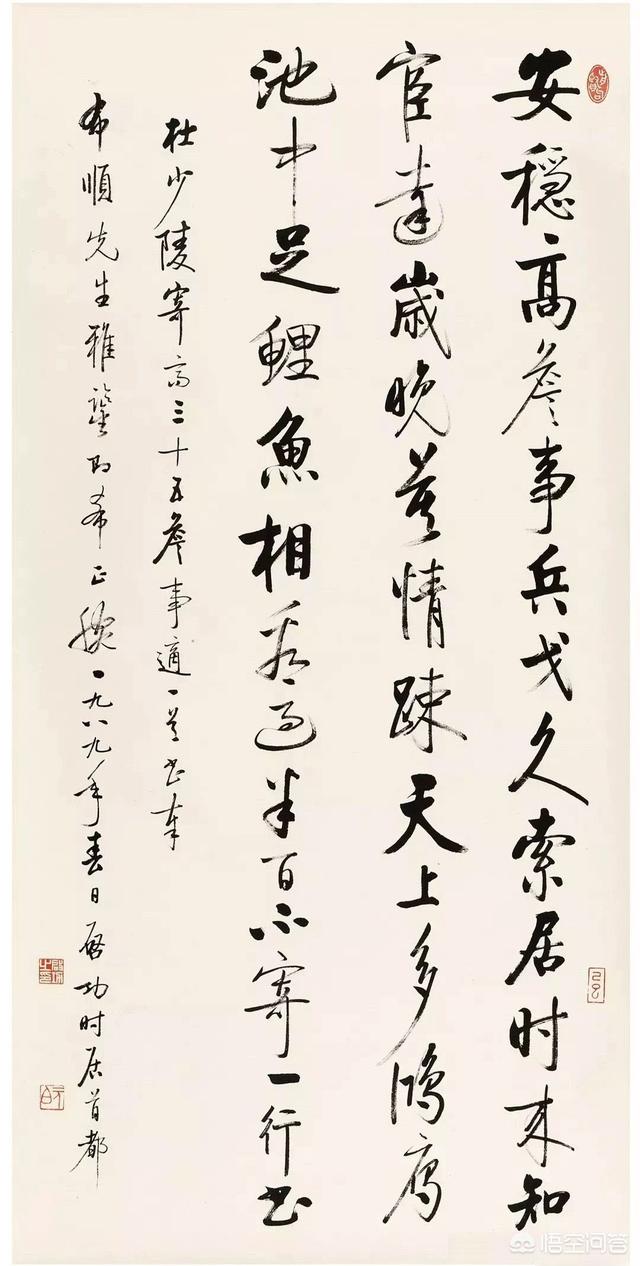 安穩高詹事兵戈久索居时来知
宦達歲晚莫情踈天上多鴻雁
池中足鯉魚相看過半百不寄一行書
杜少陵寄高三十五詹事適一首書奉
布順先生雅鑒即希正腕一九八九年春日啟功时居首都
元白
悟空问答